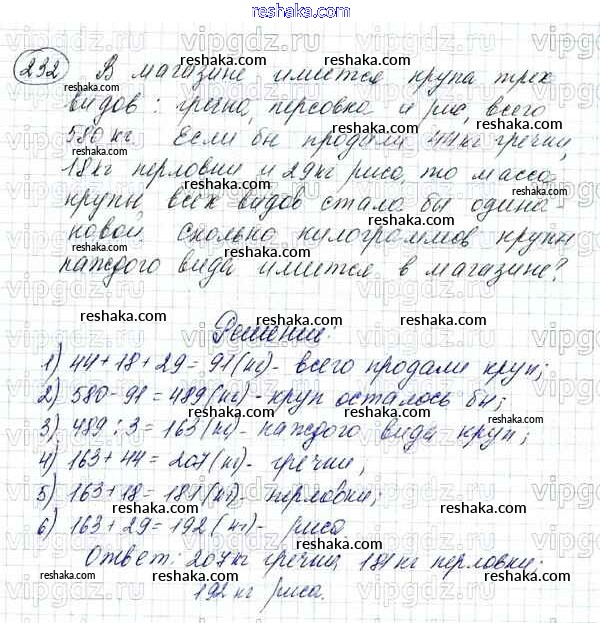 reshaka.com
232 В магазине имеется крупа трех
видов: гречка, перловка и рис, всего
580 кг. Если бы продали 44 кг гречки,
18 кг перловки и 29 кг риса, то масса
крупы всех видов стала бы одина-
ковой. Сколько килограммов крупы
каждого вида имеется в магазине?
Решение:
1) 44 + 18 + 29 = 91 (кг) - всего продали круп;
2) 580 - 91 = 489 (кг) - круп осталось бы;
3) 489 : 3 = 163 (кг) - каждого вида круп;
4) 163 + 44 = 207 (кг) - гречки;
5) 163 + 18 = 181 (кг) - перловки;
6) 163 + 29 = 192 (кг) - риса.
Ответ: 207 кг гречки, 181 кг перловки;
192 кг риса.
reshaka.com